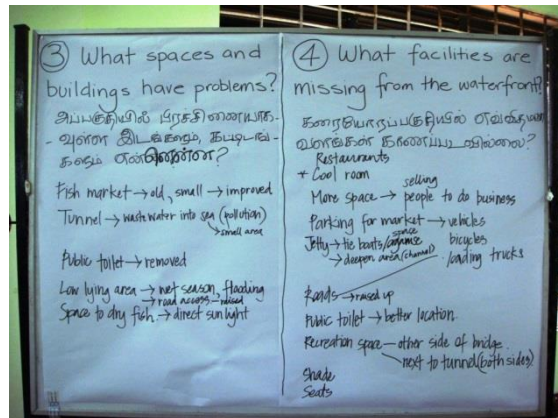 ③ What spaces and
buildings have problems?
அப்பகுதியில் பிரச்சினையாக-
-வுள்ள இடங்களும், கட்டிடங்-
களும் என்னென்ன?
Fish market → old, small → improved
Tunnel → wash water into sea (pollution)
→ small area
Public toilet → removed
Low lying area → wet season, flooding
→ road access → raised
Space to dry fish → direct sunlight
④ What facilities are
missing from the waterfront?
கரையோரப்பகுதியில்
வளங்கள் காணப்படவில்லை?
Restaurants
+ Cool room
selling
More space → people to do business
Parking for market → vehicles
space
Jetty → tie boats/organise bicycles
→ deepen area (channel) loading trucks
Roads → raised up
Public toilet → better location
Recreation space — other side of bridge
next to tunnel (both sides)
Shade
Seats